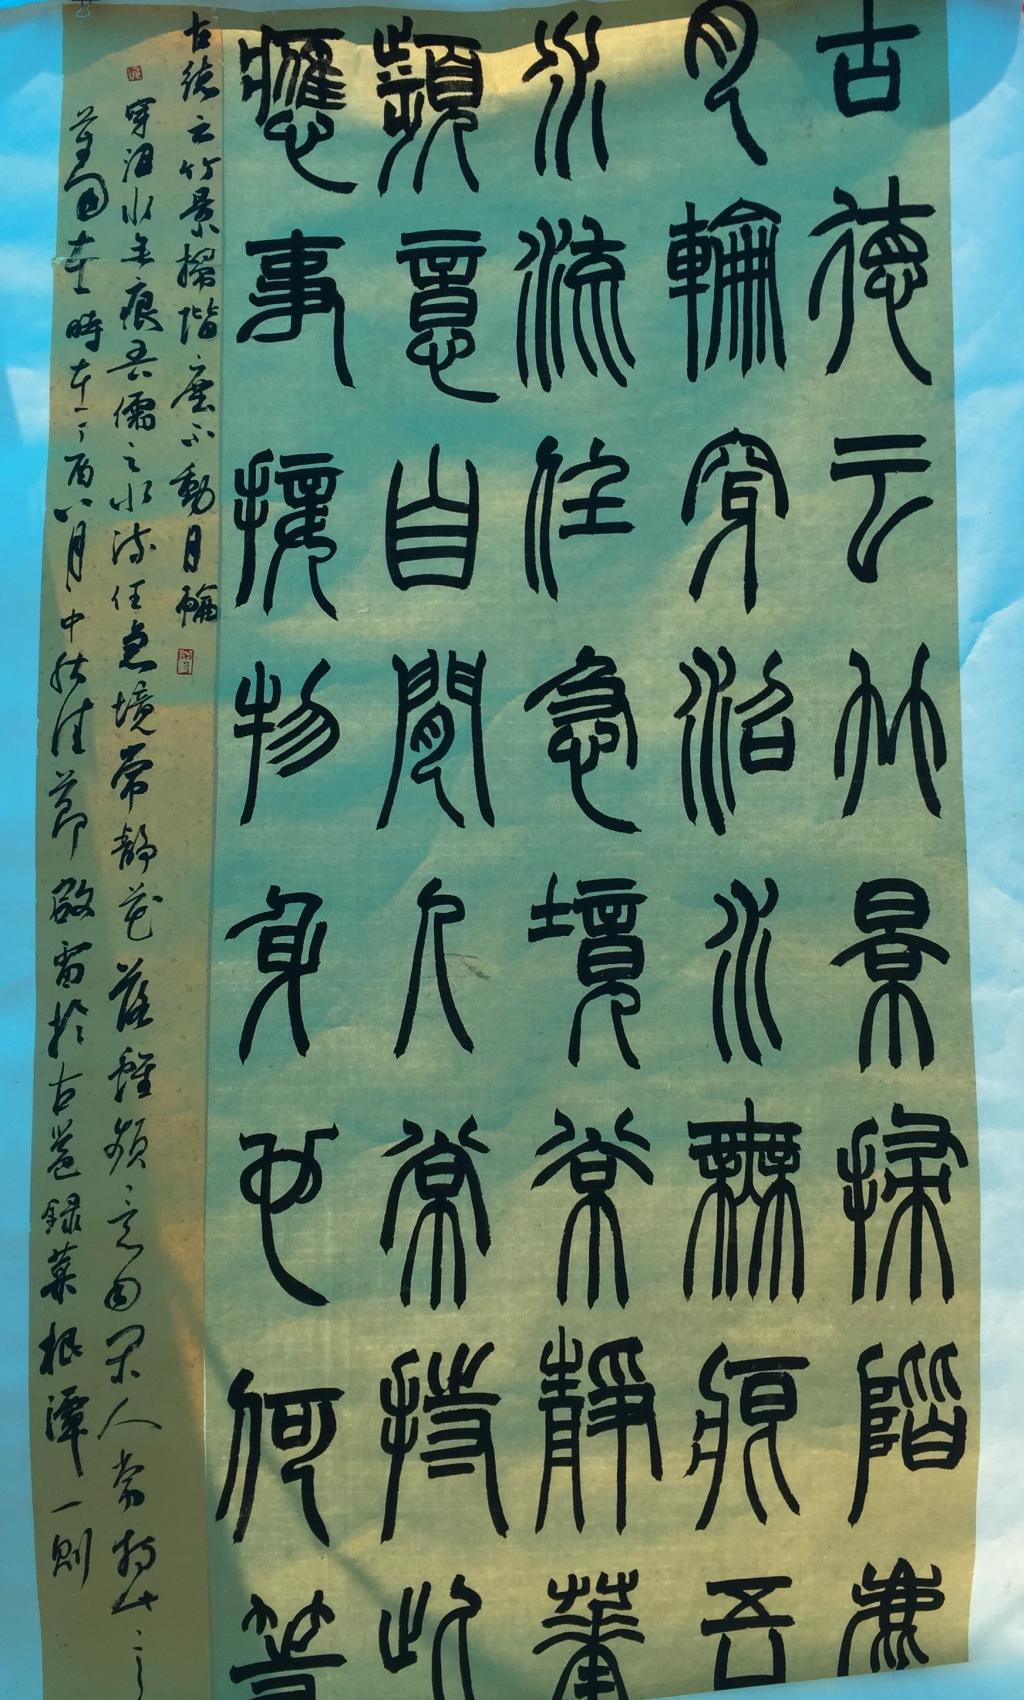 古德云竹景掃階塵
月輪穿沼水無痕吾
水流任急境常靜華
頻意自閒人常持此
應事接物身心何等
古德云竹景掃階塵不動月輪
穿沼水無痕吾儒云水流任急境常靜花落雖頻意自閒人常持此
時在丁酉八月中秋佳節啟雷於古邕錄菜根譚一則